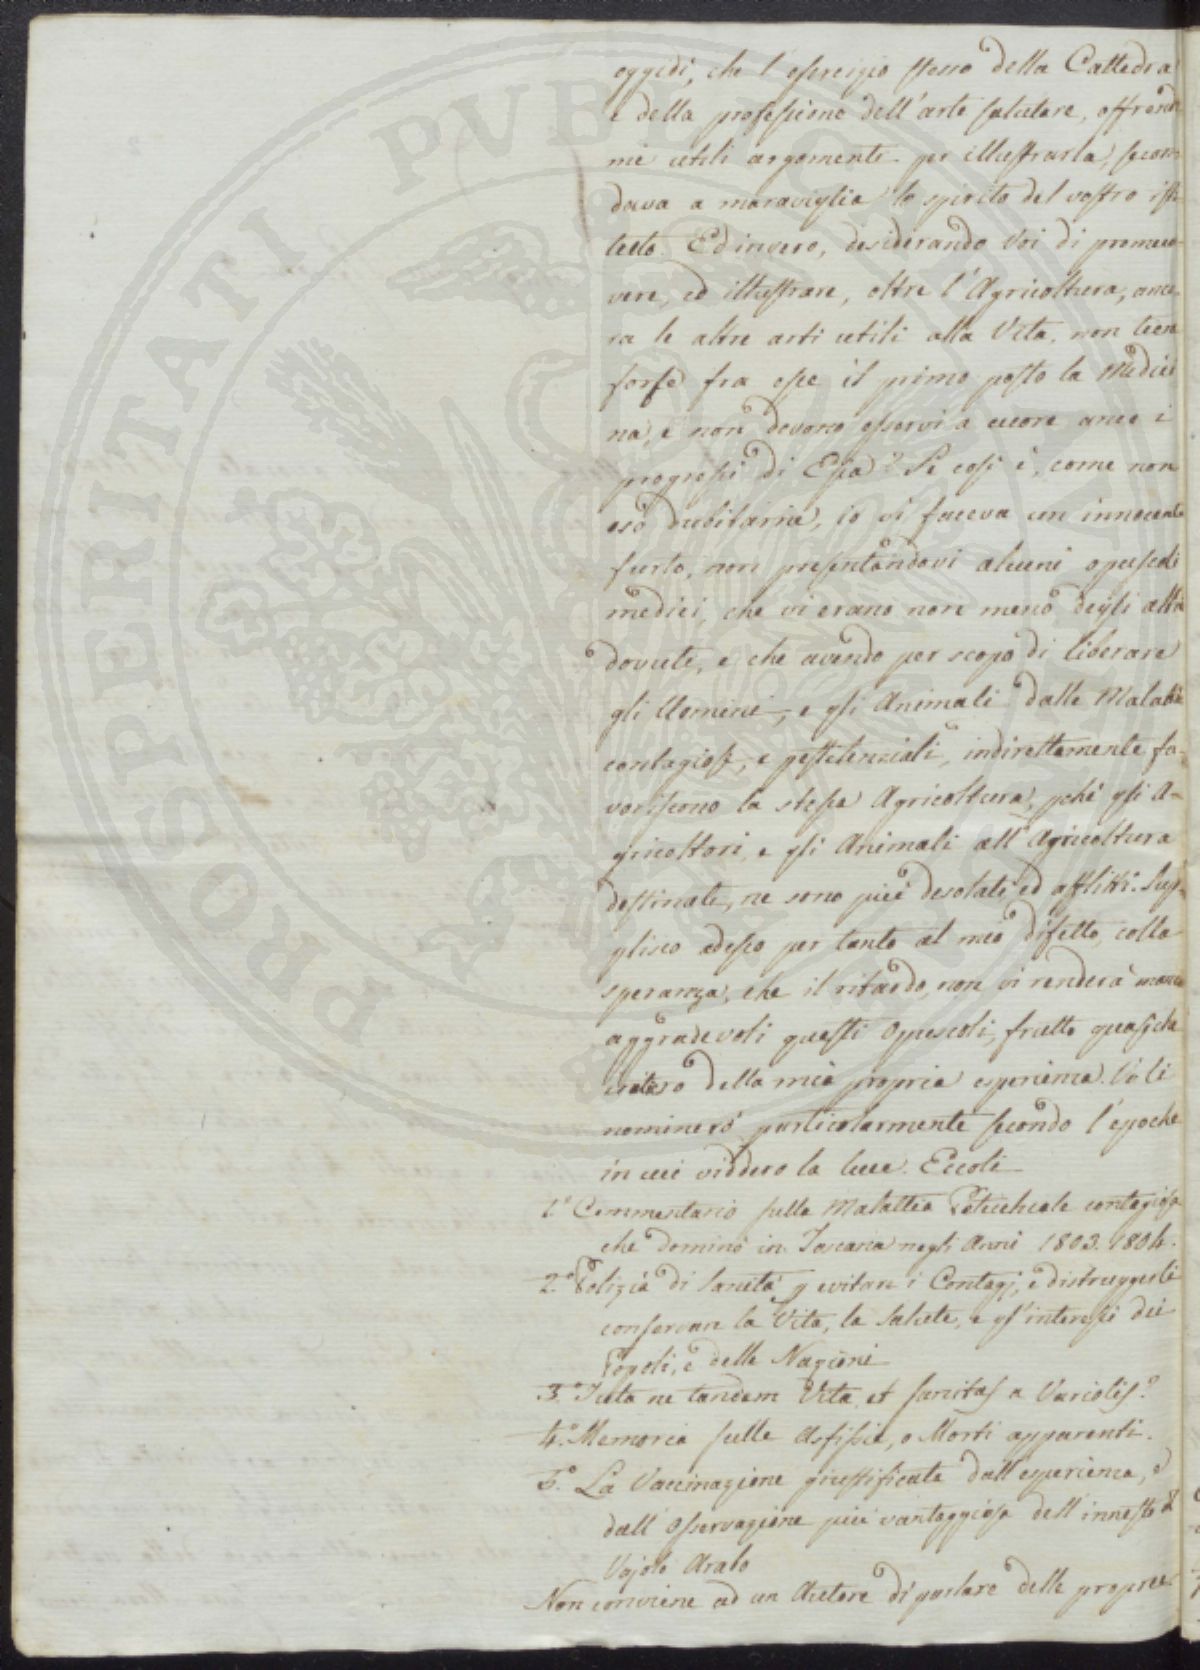 oggidì, che l'esercizio stesso della Cattedra
e della professione dell'arte salutare, offrendo
mi utili argomenti per illustrarla, secon
dava a maraviglia lo spirito del vostro isti
tuto. Ed invero, desiderando Voi di promuo-
vere, ed illustrare, oltre l'Agricoltura, anco
ra le altre arti utili alla Vita, non tiene
forse fra esse il primo posto la Medici
na, e non devono esservi a cuore anco i
progressi di Essa? Se così è, come non
oso dubitarne, io vi faceva un innocente
furto, non presentandovi alcuni opuscoli
medici, che vi erano non meno degli altri
dovuti, e che avendo per scopo di liberare
gli Uomini, e gli Animali dalle Malattie
contagiose, e pestilenziali, indirettamente fa-
voriscono la stessa Agricoltura, pchè gli A-
gricoltori, e gli Animali all'Agricoltura
destinati, ne sono più desolati, ed afflitti. Sup-
plisco adesso per tanto al mio difetto, colla
speranza, che il ritardo, non vi renderà meno
aggradevoli questi Opuscoli, frutto quasiche
intero della mia propria esperienza. Vò li
nominerò particolarmente secondo l'epoche
in cui viddero la luce. Eccoli
1.° Commentario sulla Malattia Petecchiale contagiosa
che dominò in Toscana negli Anni 1803. 1804.
2.° Polizia di Sanità p evitare i Contagj, e distruggerli
conservare la Vita, la Salute, e gl'interessi dei
Popoli, e delle Nazioni
3.° Tuta ne tandem Vita et sanitas a Variolis?
4.° Memoria sulle Asfissie, o Morti apparenti.
5.° La Vaccinazione giustificata dall'esperienza, e
dall'Osservazione più vantaggiosa dell'innesto d
Vajolo Arabo
Non conviene ad un Autore di parlare delle proprie
PROSPERITATI PVBLICAE